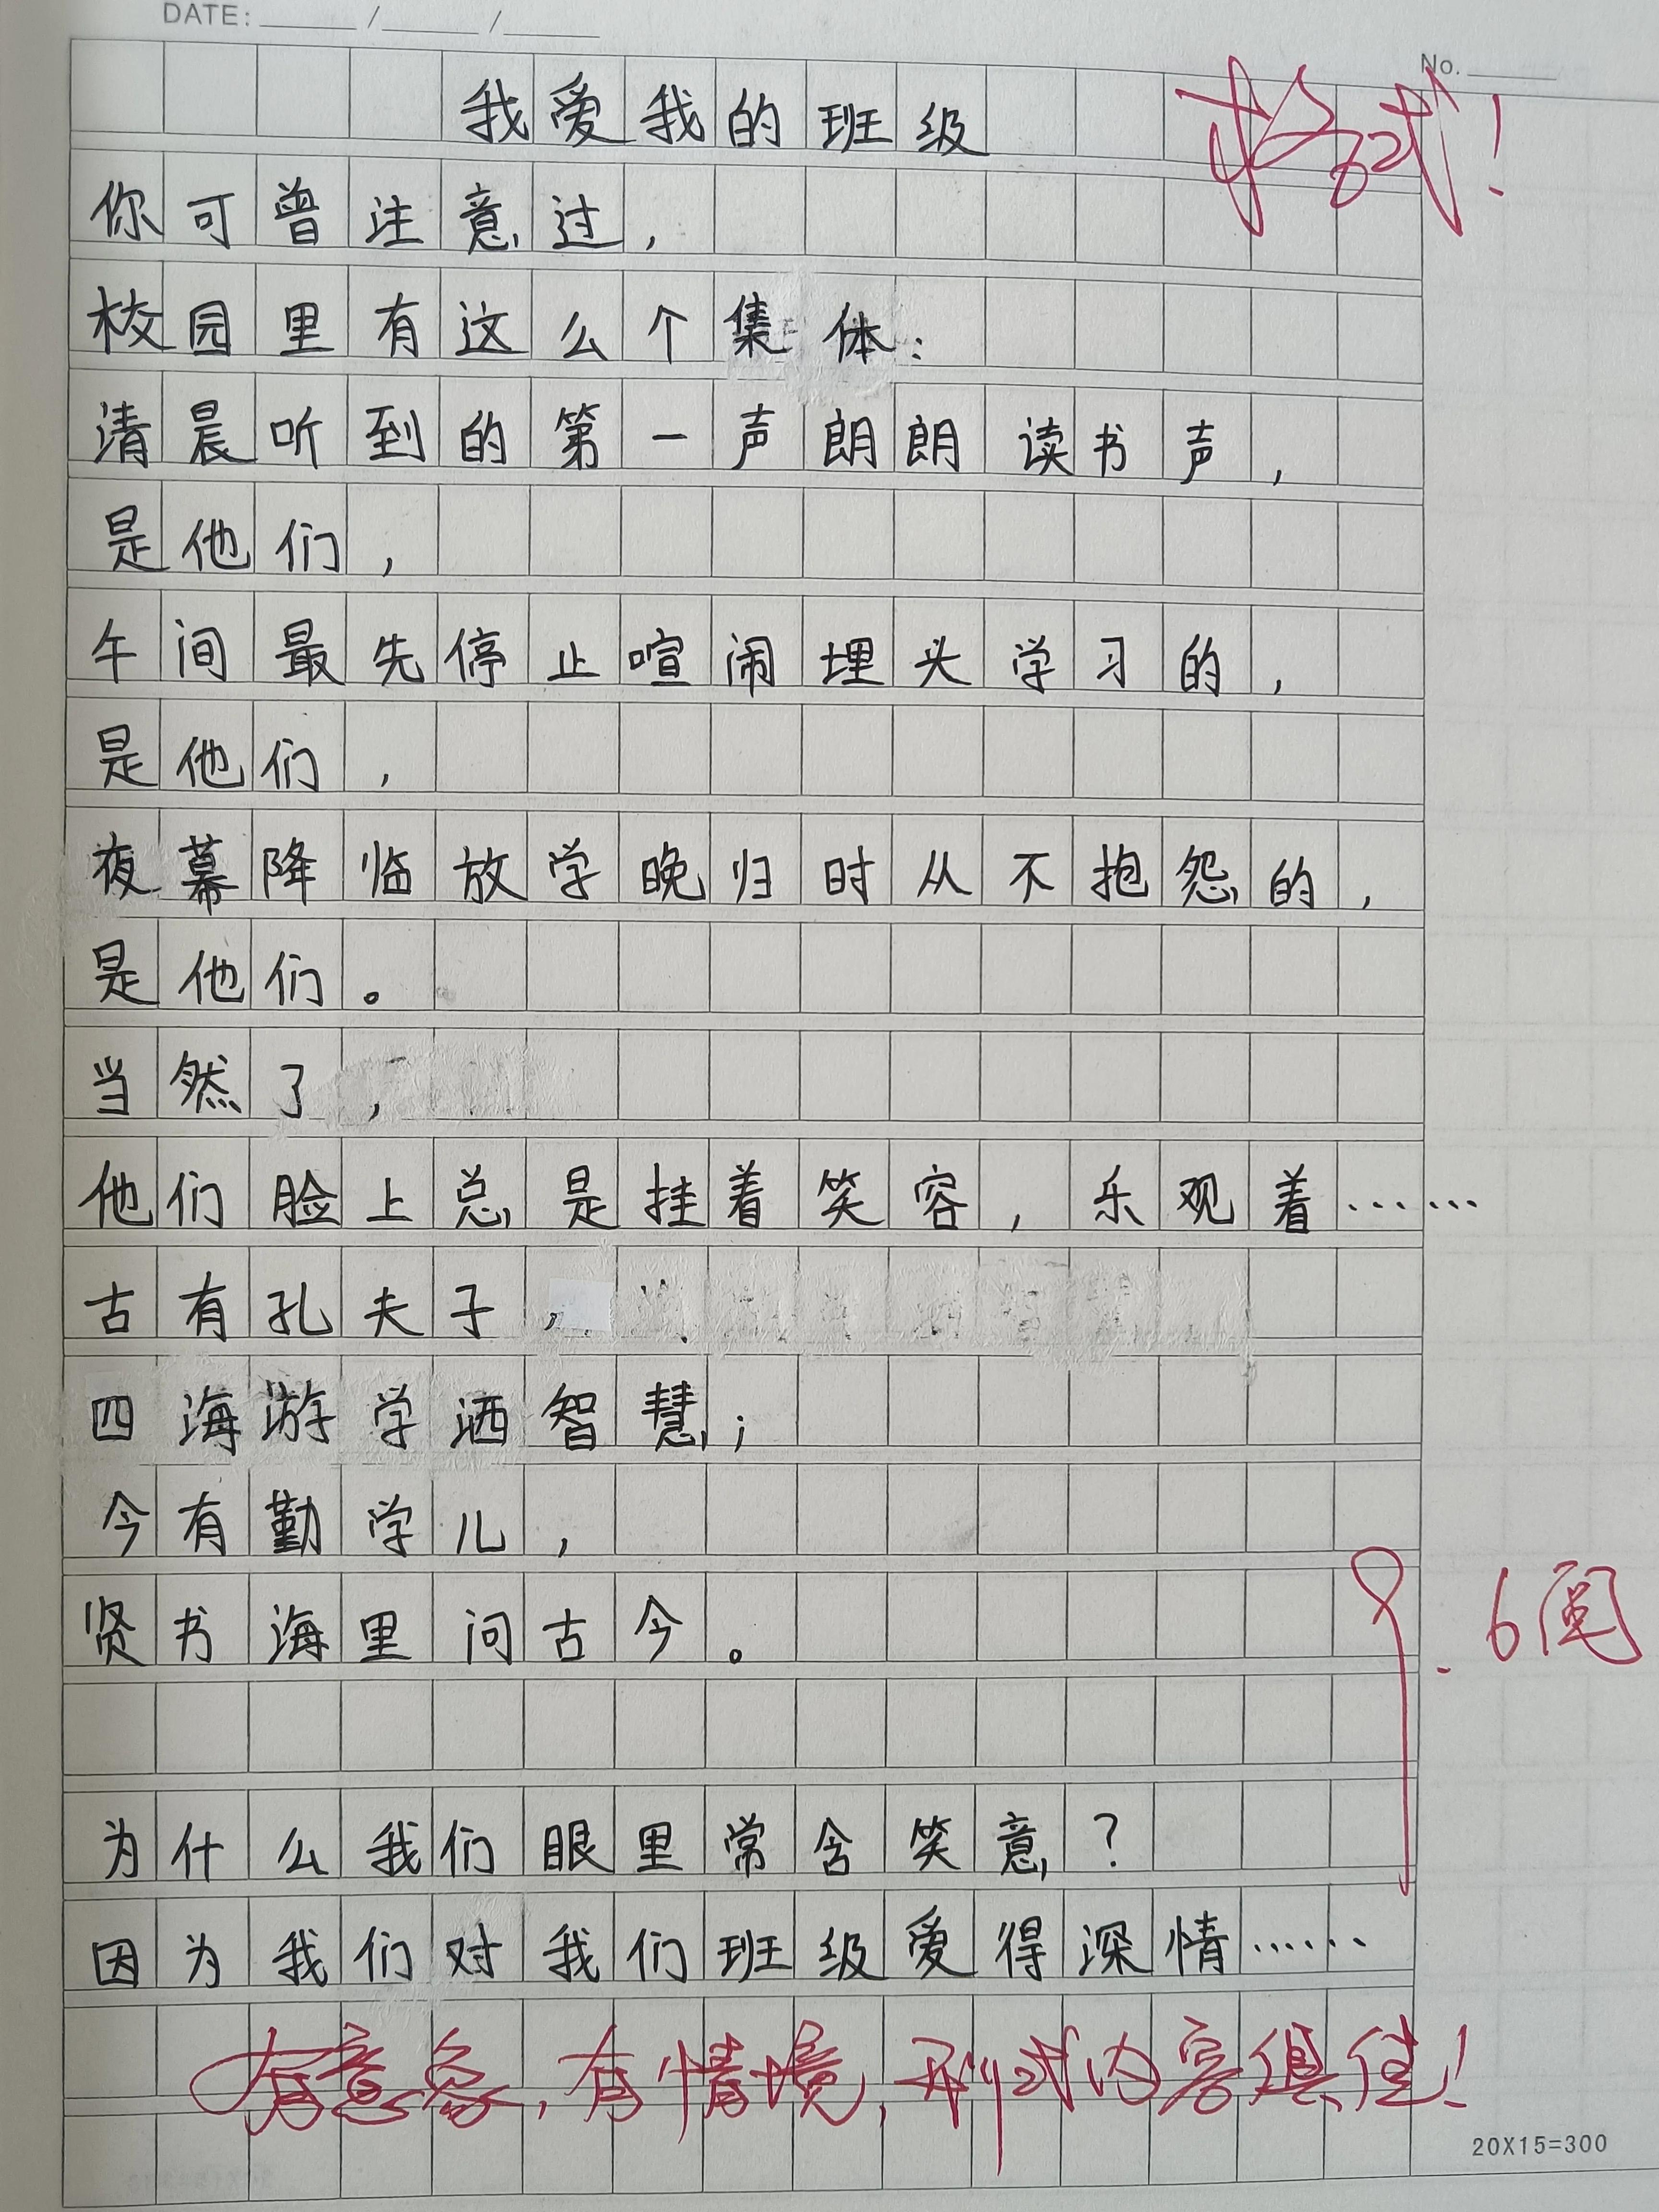 DATE: / /
No.
我爱我的班级
格式!
你可曾注意过,
校园里有这么个集体:
清晨听到的第一声朗朗读书声,
是他们,
午间最先停止喧闹埋头学习的,
是他们,
夜幕降临放学晚归时从不抱怨的,
是他们。
当然了,
他们脸上总是挂着笑容,乐观着……
古有孔夫子,
四海游学洒智慧;
今有勤学儿,
贤书海里问古今。
为什么我们眼里常含笑意?
因为我们对我们班级爱得深情……
有意象,有情境,形式内容俱佳!
20X15=300